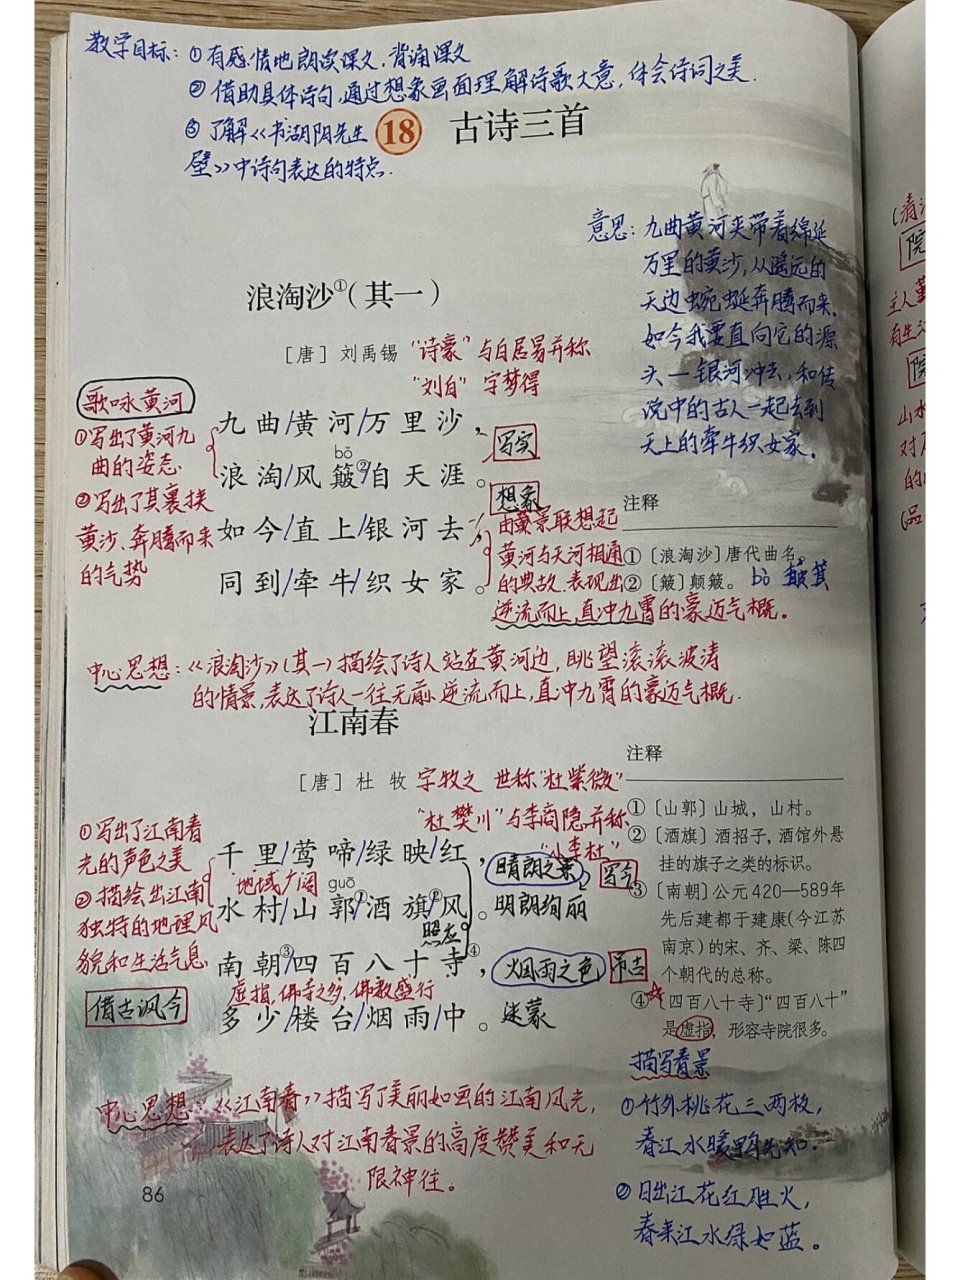 教学目标：①有感情地朗读课文，背诵课文
②借助具体诗句，通过想象画面理解诗歌大意，体会诗词之美．
③了解《书湖阴先生
壁》中诗句表达的特点．
18 古诗三首
意思：九曲黄河夹带着绵延
万里的黄沙，从遥远的
天边蜿蜒奔腾而来．
如今我要直向它的源
头—银河冲去，和传
说中的古人一起去到
天上的牵牛织女家．
浪淘沙①（其一）
［唐］刘禹锡 “诗豪”与白居易并称
“刘白” 字梦得
歌咏黄河
①写出了黄河九
曲的姿态．
②写出了其裹挟
黄沙、奔腾而来
的气势
九曲/黄河/万里沙，
bǒ
浪淘/风簸②/自天涯。
如今/直上/银河去，
同到/牵牛/织女家。
写实
想象
由景联想起
黄河与天河相通
的典故．表现出
逆流而上，直冲九霄的豪迈气概。
注释
①〔浪淘沙〕唐代曲名。
②〔簸〕颠簸。 bǒ
中心思想：《浪淘沙》（其一）描绘了诗人站在黄河边，眺望滚滚波涛
的情景，表达了诗人一往无前．逆流而上，直冲九霄的豪迈气概．
江南春
［唐］杜 牧 字牧之 世称“杜紫微”
“杜樊川”与李商隐并称
“小李杜”
①写出了江南春
光的声色之美
②描绘出江南
独特的地理风
貌和生活气息
借古讽今
千里/莺啼/绿映/红，
地域广阔
guō
水村/山郭①/酒旗②/风。
照应
南朝③/四百八十寺④，
虚指，佛寺之多，佛教盛行
多少/楼台/烟雨/中。
晴朗之景
写今
明朗绚丽
烟雨之色
吊古
迷蒙
注释
①〔山郭〕山城，山村。
②〔酒旗〕酒招子，酒馆外悬
挂的旗子之类的标识。
③〔南朝〕公元420—589年
先后建都于建康（今江苏
南京）的宋、齐、梁、陈四
个朝代的总称。
④〔四百八十寺〕“四百八十”
是虚指，形容寺院很多。
中心思想：《江南春》描写了美丽如画的江南风光，
表达了诗人对江南春景的高度赞美和无
限神往。
描写春景
①竹外桃花三两枝，
春江水暖鸭先知．
②日出江花红胜火，
春来江水绿如蓝。
86